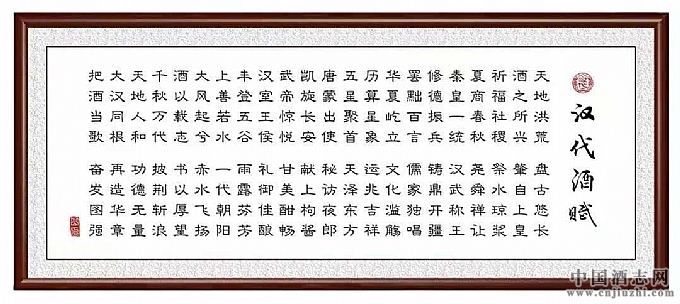 汉代酒赋
天地洪荒 盘古悠长
酒之所兴 肇自上皇
祈福社稷 祭水琼浆
夏商春秋 尧舜禅让
秦皇一统 汉武称王
修德振兵 铸鼎开疆
罢黜百言 儒家独唱
华夏屹立 文化滥觞
历算星象 运兆吉祥
五星聚首 天泽东方
唐蒙出使 秘访夜郎
凯旋长安 献上枸酱
武帝惊悦 甘美酣畅
汉室王侯 礼御佳酿
丰登五谷 雨露芬芳
上善若水 一代朝阳
大风起兮 赤水飞扬
酒以载志 书以厚望
千秋万代 披荆斩浪
天地人和 功德无量
大汉同根 再造华章
把酒当歌 奋发图强
中国酒志网
www.cnjiuzhi.com